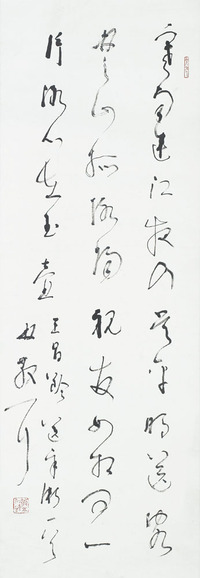 寒雨連江夜入吳平明送客
楚山孤洛陽親友如相問一
片冰心在玉壺 王昌齡送辛漸一首
林散耳